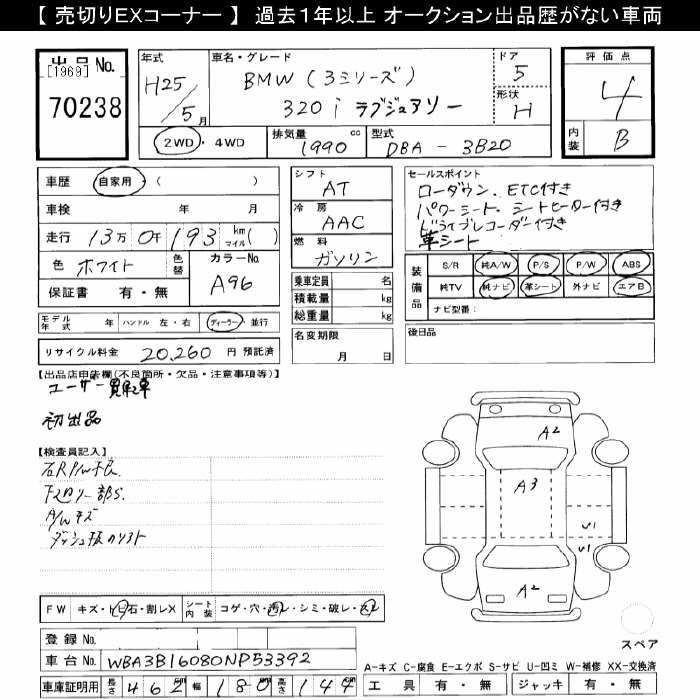 【 売切りEXコーナー 】 過去１年以上 オークション出品歴がない車両
出品 No.
[1969]
70238
年式
H25/5月
車名・グレード
BMW (3シリーズ)
320i ラグジュアリー
ドア
5
形状
H
評価点
4
内装
B
2WD・4WD
排気量 1990 cc
型式 DBA - 3B20
車歴 自家用・( )
車検 年 月
走行 13万0千193 km マイル( )
色 ホワイト 色替
カラーNo. A96
保証書 有・無
シフト AT
冷房 AAC
燃料 ガソリン
乗車定員 名
積載量 kg
総重量 kg
名変期限
月 日
セールスポイント
ローダウン. ETC付き
パワーシート. シートヒーター付き
ドライブレコーダー付き
革シート
装備品
S/R 純A/W P/S P/W ABS
純TV 純ナビ 革シート 外ナビ エアB
ナビ型番:
後日品
モデル年式 年 ハンドル 左・右 ディーラー・並行
リサイクル料金 20,260 円 預託済
【出品店申告欄(不良箇所・欠品・注意事項等)】
ユーザー買取車
初出品
【検査員記入】
右R P/W不良.
A/Wキズ
A2
A3
V1
V1
A2
スペア
FW キズ・トビ石・割レX
シート内装 コゲ・穴・汚レ・シミ・破レ・スレ
登録 No.
車台 No. WBA3B16080NP53392
車庫証明用 長さ 462 幅 180 高さ 144
A-キズ C-腐食 E-エクボ S-サビ U-凹ミ W-補修 XX-交換済
工具 有・無 ジャッキ 有・無